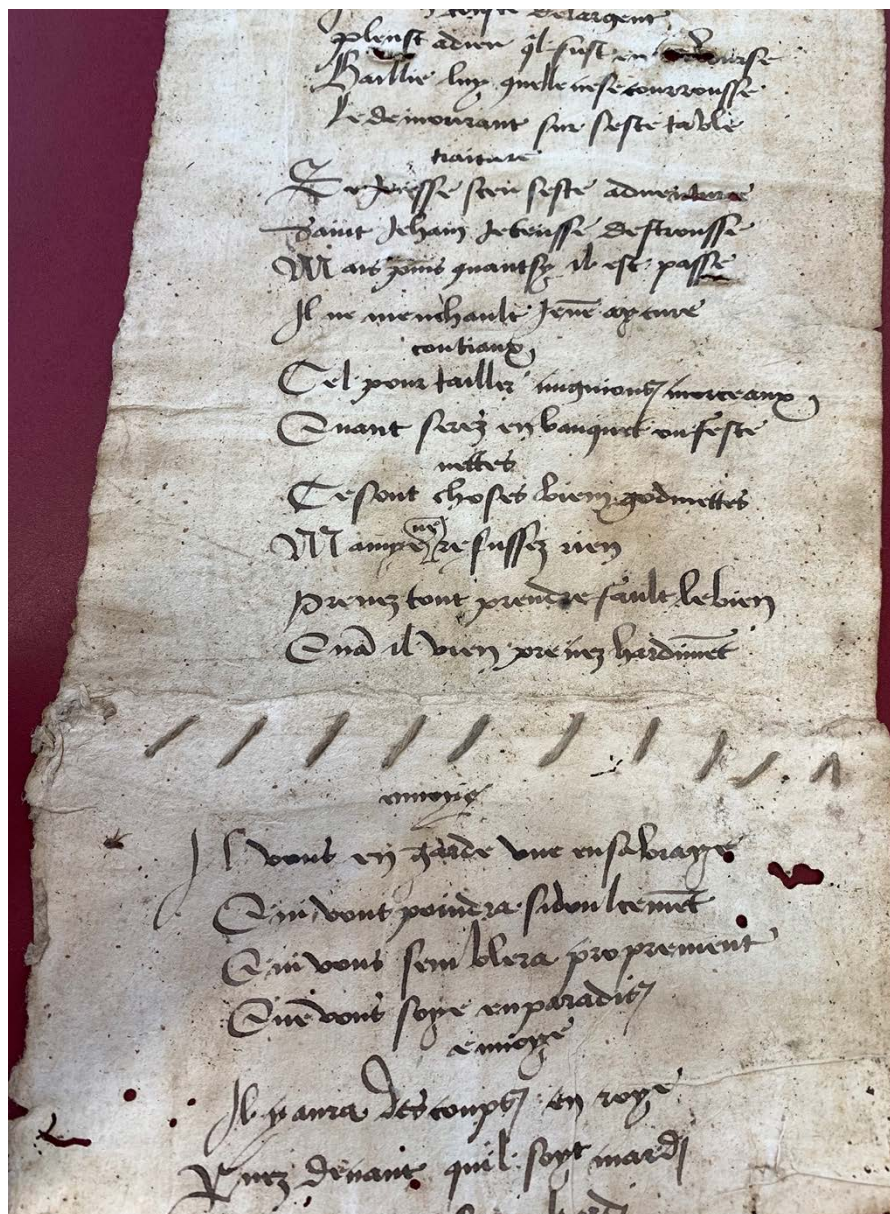 de largent
pleust a dieu ql fust en bourse
Baillie luy quelle ne se courrousse
Le demourant sur seste table
traiture
Se jeusse sceu seste adventure
Saint Jehain Je leusse destrousse
Mais puis quant sy il est passe
Il ne men chault Jen
contiaux
Cel pour tailler mignions morceaux
Quant serez en banquet ou feste
nettes
Ce sont choses bien godinettes
Mamye ne refussez rien
Prenez tout prendre fault le bien
Quā il vien prenez hardimēt
Il vous en garde une
Qui vous poindra si doulcemēt
Qui vous semblera proprement
Que vous soye en paradis
Il y aura des coups en roye
Ruez devant quil soyt mardi